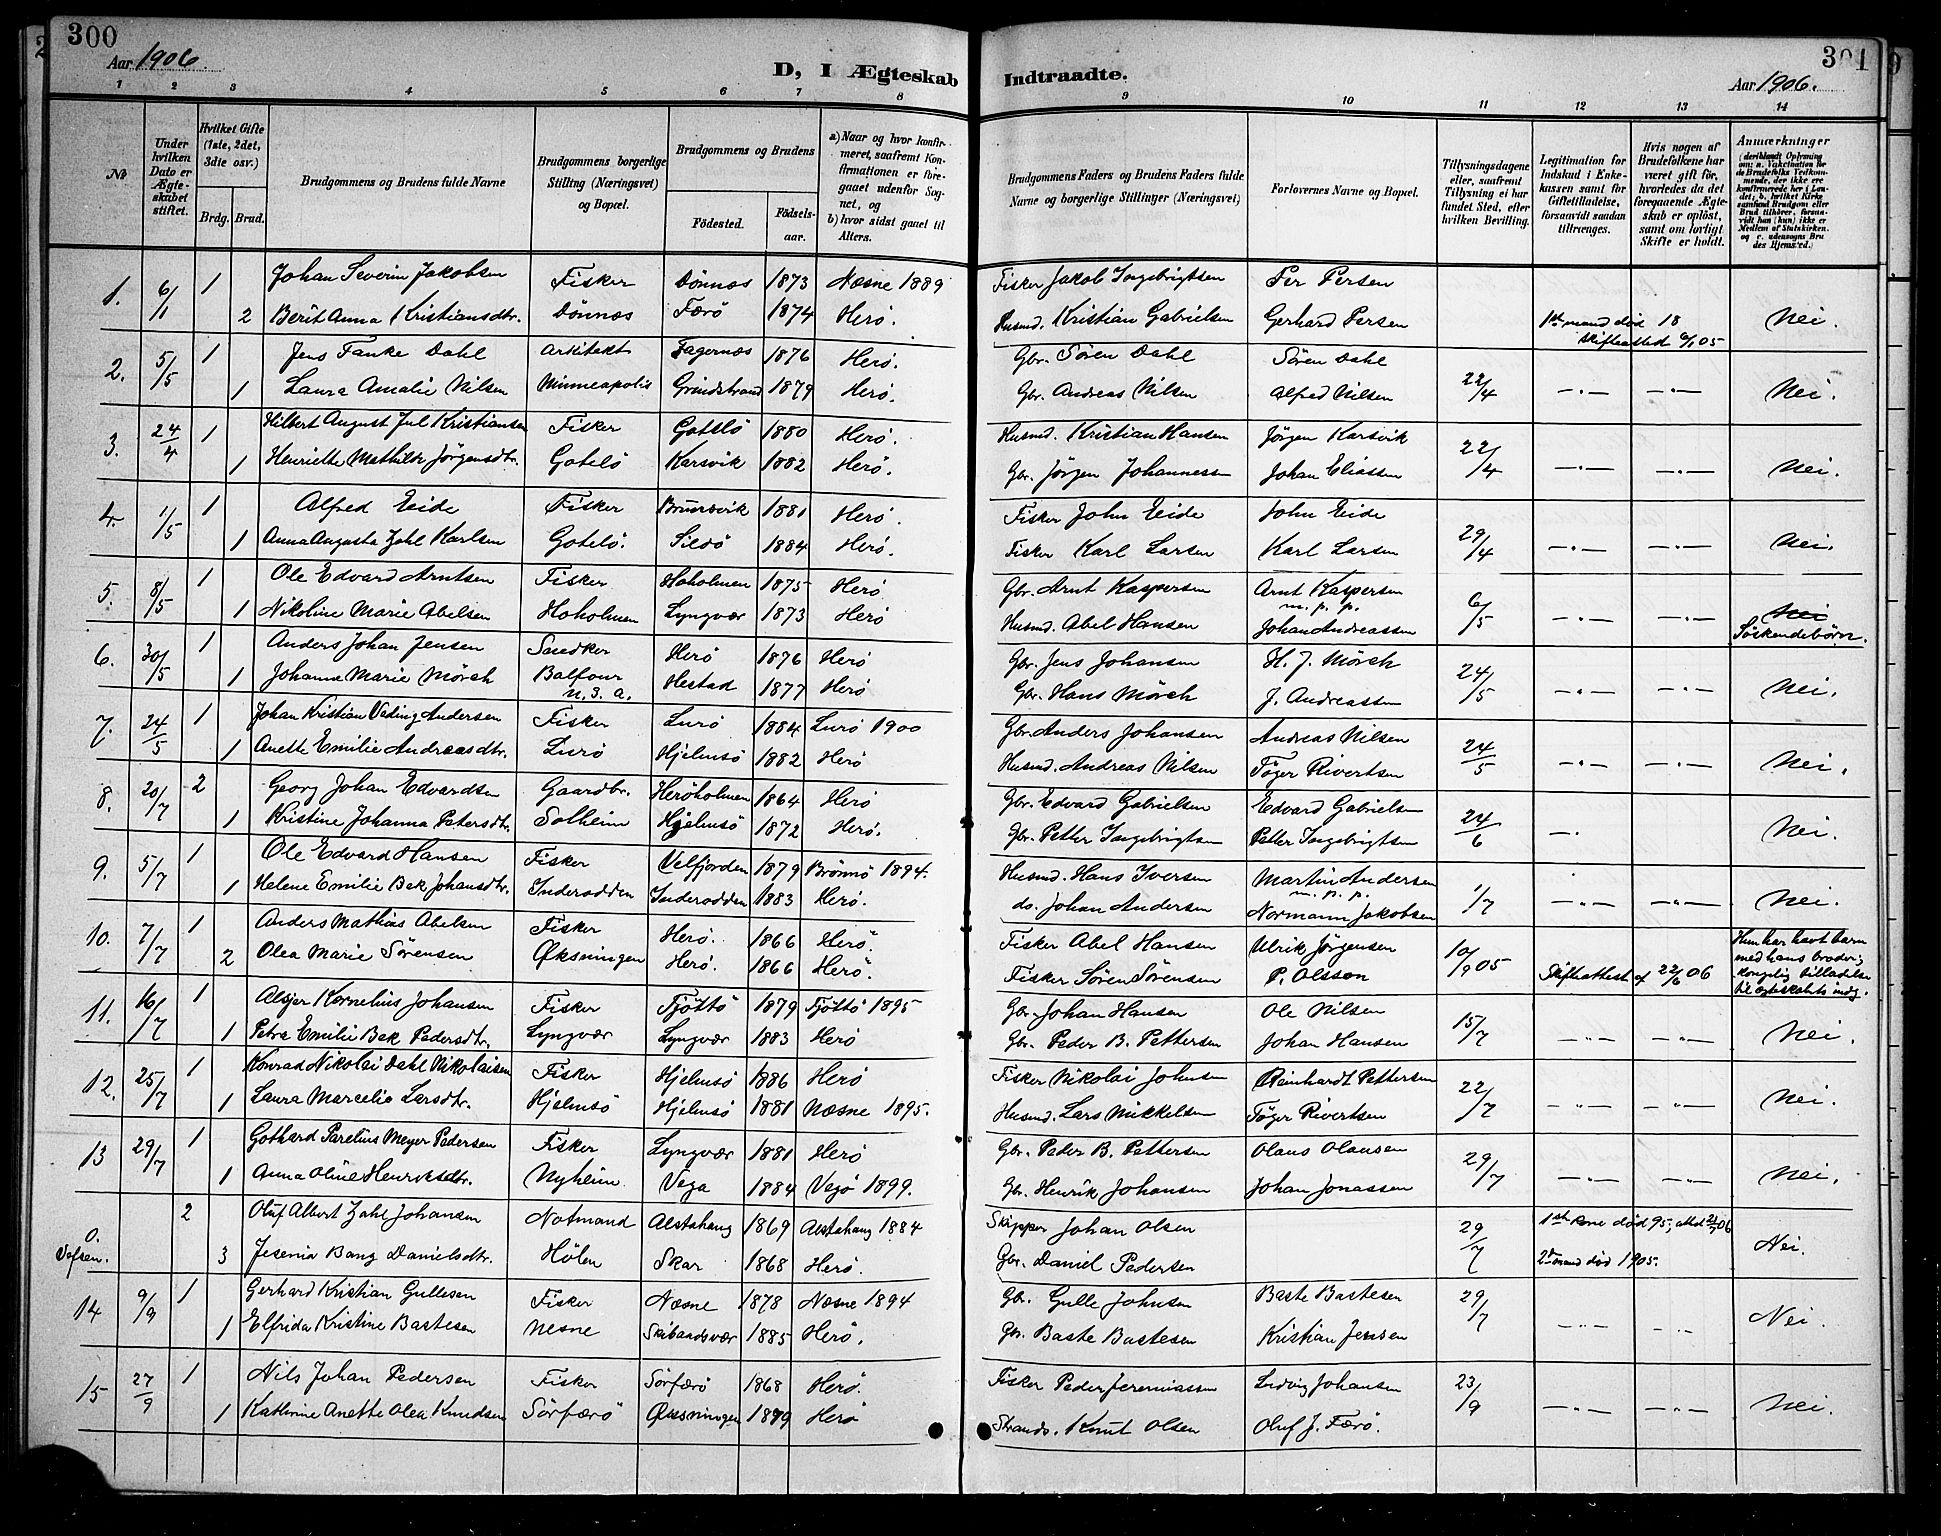 300
Aar 1906.
D, I Ægteskab
Indtraadte.
301
Aar 1906.
1 2 3 4 5 6 7 8 9 10 11 12 13 14
No
Under hvilken Dato er Ægteskabet stiftet.
Hvilket Gifte (1ste, 2det, 3die osv.)
Brdg. Brud.
Brudgommens og Brudens fulde Navne
Brudgommens borgerlige Stilling (Næringsvei) og Bopæl.
Brudgommens og Brudens
Fødested.
Fødselsaar.
a) Naar og hvor konfirmeret, saafremt Konfirmationen er foregaaet udenfor Sognet, og
b) hvor sidst gaaet til Alters.
Brudgommens Faders og Brudens Faders fulde Navne og borgerlige Stillinger (Næringsvei)
Forlovernes Navne og Bopæl.
Tillysningsdagene eller, saafremt Tillysning ei har fundet Sted, efter hvilken Bevilling.
Legitimation for Indskud i Enkekassen samt for Giftetilladelse, forsaavidt saadan tiltrænges.
Hvis nogen af Brudefolkene har været gift før, hvorledes da det foregaaende Ægteskab er opløst, samt om lovligt Skifte er holdt.
Anmærkninger
1. 6/1 1 Johan Severin Jakobsen Fisker Dønnæs 1873 Næsne 1889 Fisker Jakob Ingebrigtsen Per Persen
2 Berit Anna Kristiansdtr. Dønnæs Færö 1874 Herö. Husmd. Kristian Gabrielsen Gerhard Persen 1st mand död 18 Nei.
2. 5/5 1 Jens Tanke Dahl Arkitekt Fagernæs 1876 Herö. Gbr. Sören Dahl Sören Dahl
1 Laura Amalie Nilsen Minneapolis Grindstrand 1879 Herö. Gbr. Andreas Nilsen Alfred Nilsen 22/4 —"— —"— Nei.
3. 24/4 1 Hilbert August Jul Kristiansen Fisker Gotslö 1880 Herö. Husmd. Kristian Hansen Jörgen Karsvik
1 Henriette Mathilde Jörgensdtr. Gotslö Karsvik 1882 Herö. Gbr. Jörgen Johannessen Johan Eliassen 22/4 —"— —"— Nei.
4. 1/5 1 Alfred Eide Fisker Brunsvik 1881 Herö. Fisker John Eide John Eide
1 Anna Augusta Zahl Karlsen Gotslö. Sildö 1884 Herö. Fisker Karl Larsen Karl Larsen 29/4 —"— —"— Nei.
5. 8/5 1 Ole Edvard Arntsen Fisker Hoholmen 1875 Herö Gbr. Arnt Kaspersen Arnt Kaspersen m. p. p.
1 Nikoline Marie Abelsen Hoholmen Lyngvær 1873 Herö Husmd. Abel Hansen Johan Andreassen 6/5 —"— —"— Nei Söskendebörn.
6. 30/5 1 Anders Johan Jensen Herö 1876 Herö Gbr. Jens Johansen H. J. Mörch
1 Johanna Marie Mörch Balfour Hestad 1877 Herö Gbr. Hans Mörch J. Andreassen 24/5 —"— —"— Nei.
7. 24/5 1 Johan Kristian Veding Andersen Fisker Lurö 1884 Lurö 1900 Gbr. Anders Johansen Andreas Nilsen
1 Anette Emilie Andreasdtr. Lurö Hjelmsö 1882 Herö Husmd. Andreas Nilsen Töger Rivertsen 24/5 —"— —"— Nei.
8. 20/7 2 Georg Johan Edvardsen Gaardbr. Heröholmen 1864 Herö Gbr. Edvard Gabrielsen Edvard Gabrielsen
1 Kristine Johanna Petersdtr. Solheim Hjelmsö 1872 Herö. Gbr. Petter Ingebrigtsen Petter Ingebrigtsen 24/6 —"— Nei.
9. 5/7 1 Ole Edvard Hansen Fisker Velfjorden 1879 Brönnö 1894. Husmd. Hans Iversen Martin Andersen m. p. p.
1 Helene Emilie Bek Johansdtr. Inderodden Inderodden 1883 Herö. do. Johan Andersen Normann Jakobsen 1/7 —"— —"— Nei.
10. 7/7 1 Anders Mathias Abelsen Fisker Herö. 1866 Herö. Fisker Abel Hansen Ulrik Jörgensen
2 Olea Marie Sörensen Øksningen Herö. 1866 Herö. Fisker Sören Sörensen P. Olsson 10/9 05 Skifteattest af 22/6 06 Hun har havt barn med hans broder, kongelig tilladelse til ægteskabets indg.
11. 16/7 1 Alsjer Kornelius Johansen Fisker Tjöttö 1879 Tjöttö 1895 Gbr. Johan Hansen Ole Nilsen
1 Petra Emilie Bek Pedersdtr. Lyngvær Lyngvær 1883 Herö Gbr. Peder B. Pettersen Johan Hansen 15/7 —"— —"— Nei.
12. 25/7 1 Konrad Nikolai Dahl Nikolaisen Fisker Hjelmsö 1886 Herö Fisker Nikolai Johnsen Reinhardt Pettersen
1 Laura Marcelie Larsdtr. Hjelmsö Hjelmsö 1881 Næsne 1895. Husmd. Lars Mikkelsen Töger Rivertsen 22/7 —"— —"— Nei.
13 29/7 1 Gothard Parelius Meyer Pedersen Fisker Lyngvær 1881 Herö Gbr. Peder B. Pettersen Olaus Olausen
1 Anna Oline Henriksdtr. Nyheim Vega 1884 Vegö 1899. Gbr. Henrik Johansen Johan Jonassen 29/7 —"— —"— Nei.
0. Vefsen. 2 Oluf Albert Zahl Johansen Notmand Alstahaug 1869 Alstahaug 1884 Skipper Johan Olsen 1st kone död 95,
3 Jesenia Bang Danielsdtr. Hölen Skar 1868 Herö. Gbr. Daniel Pedersen 29/7 2den mand död 1905. Nei.
14 9/9 1 Gerhard Kristian Gullesen Fisker Næsne 1878 Næsne 1894 Gbr. Gulle Johnsen Baste Bastesen
1 Elfrida Kristine Bastesen Nesne Skibaadsvær 1885 Herö. Gbr. Baste Bastesen Kristian Jensen 29/7 —"— —"— Nei.
15 27/9 1 Nils Johan Pedersen Fisker Sörfærö 1868 Herö. Fisker Peder Jeremiassen Ludvig Johansen
1 Kathrine Anette Olea Knudsen Sörfærö Øksningen 1879 Herö Strands. Knut Olsen Oluf J. Færö. 23/9 —"— —"— Nei.